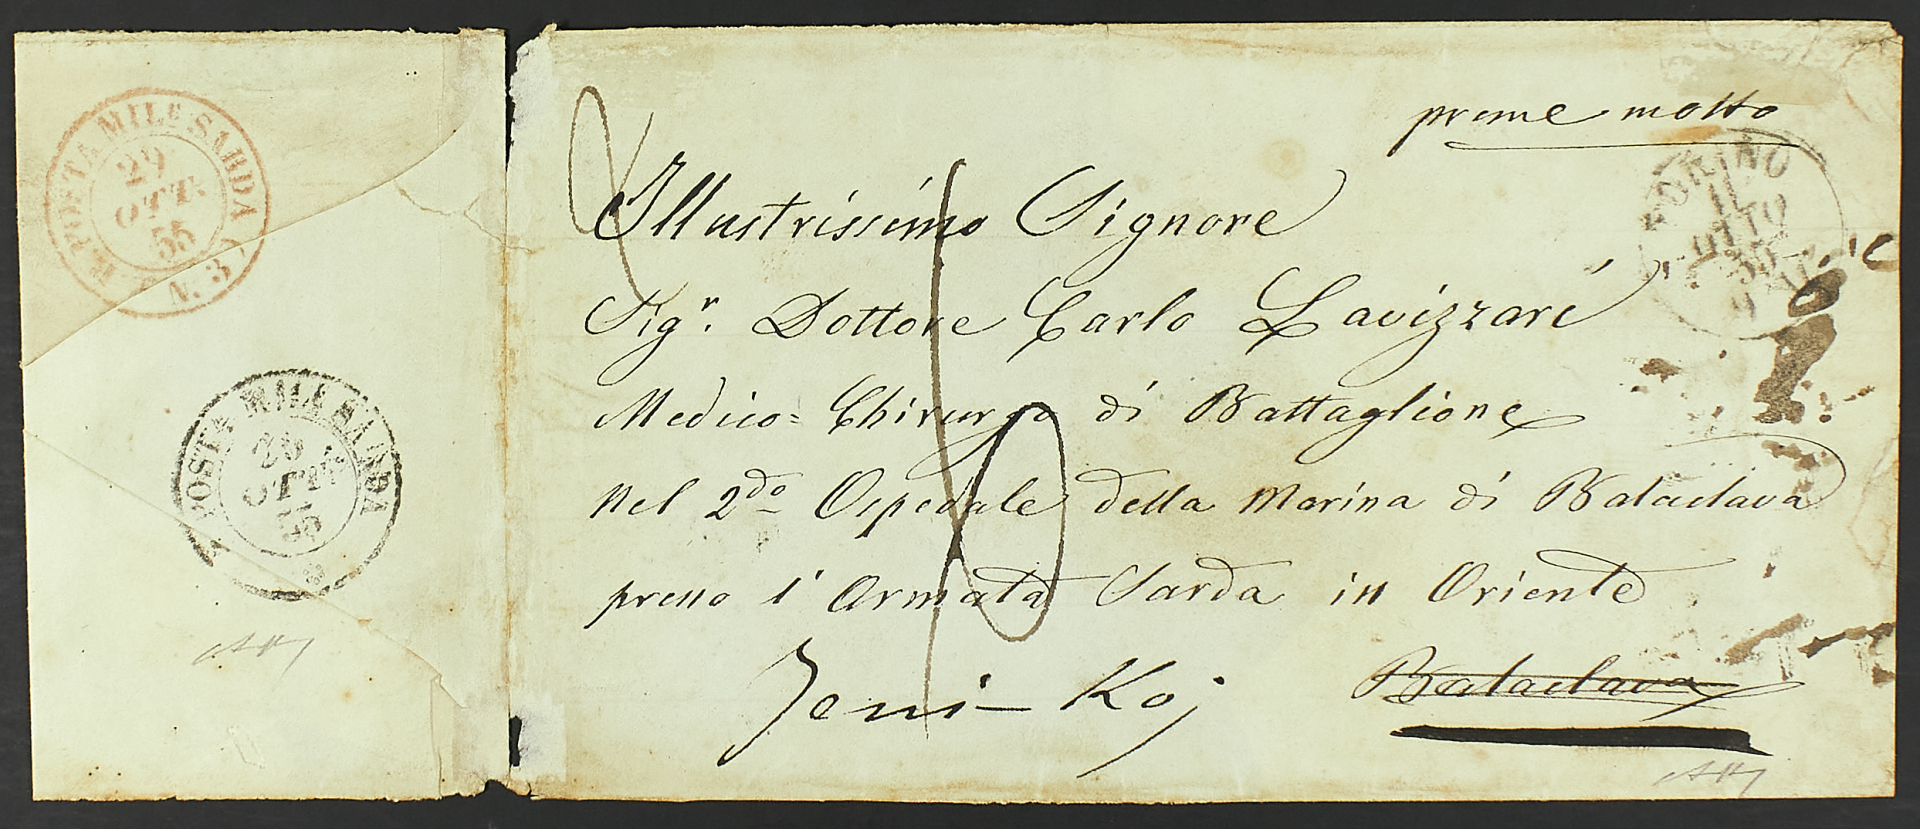 R. POSTA MILE SARDA
29
OTT.
55
N. 3
POSTA MILE SARDA
OTT
55
preme molto
TORINO
11
OTTO
55
Illustrissimo Signore
Sigr. Dottore Carlo Lavizzari
Medico=Chirurgo di Battaglione
nel 2do Ospedale della Marina di Bataclava
presso l'Armata Sarda in Oriente
Jeni-Koj
Bataclava